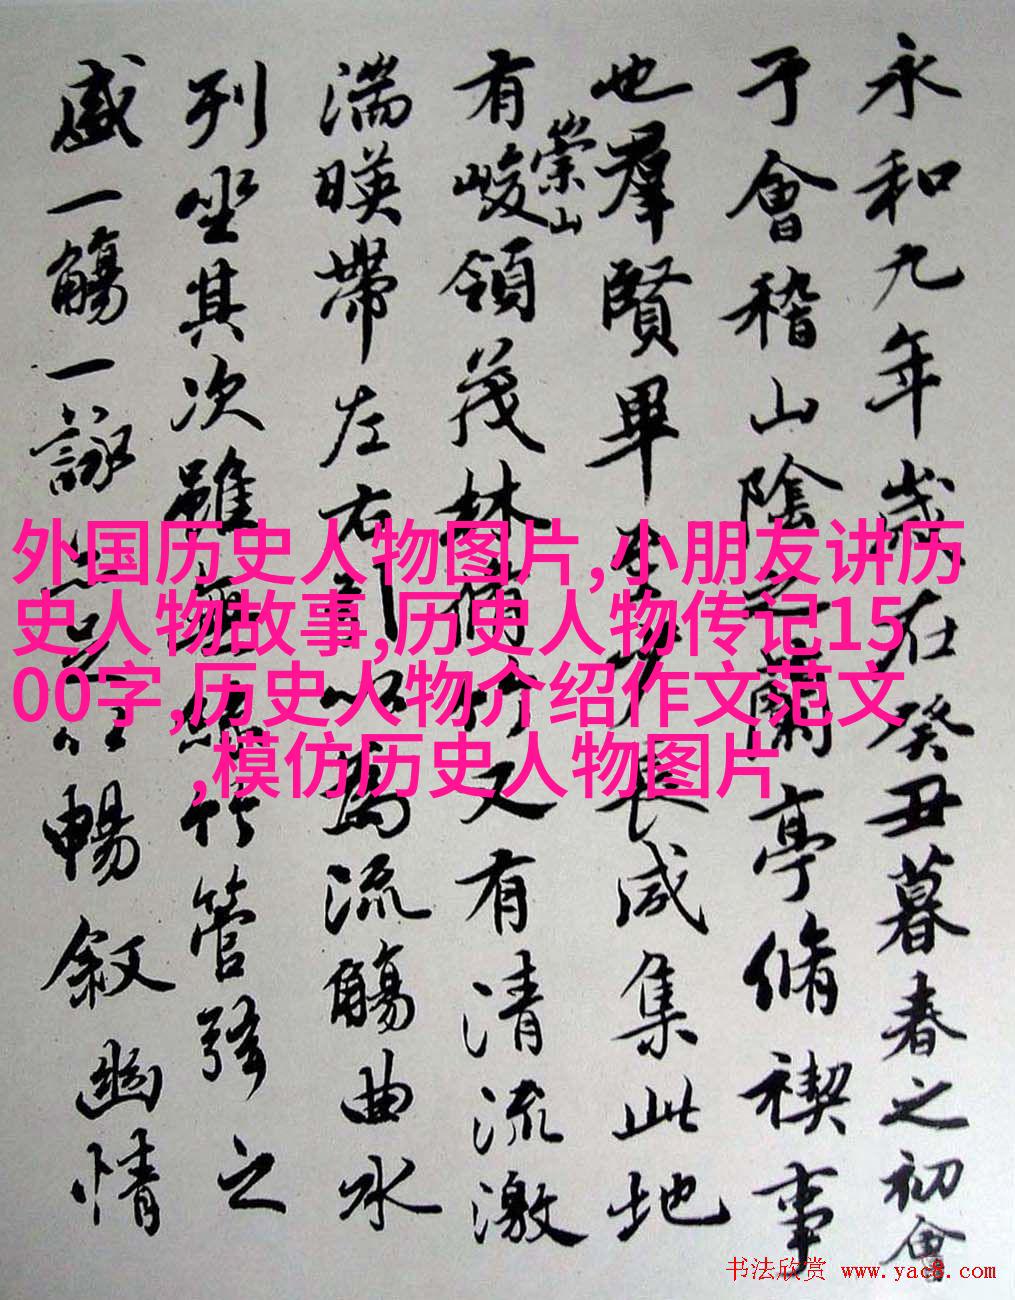 永和九年歲在癸丑暮春之初會
于會稽山陰之蘭亭脩禊事
也羣賢畢至少長咸集此地
有崇山峻領茂林脩竹又有清流激
湍暎帶左右引以為流觴曲水
列坐其次雖無絲竹管弦之
盛一觴一詠亦足以暢敘幽情
外国历史人物图片,小朋友讲历
史人物故事,历史人物传记15
00字,历史人物介绍作文范文
,模仿历史人物图片
书法欣赏 www.yac8.com